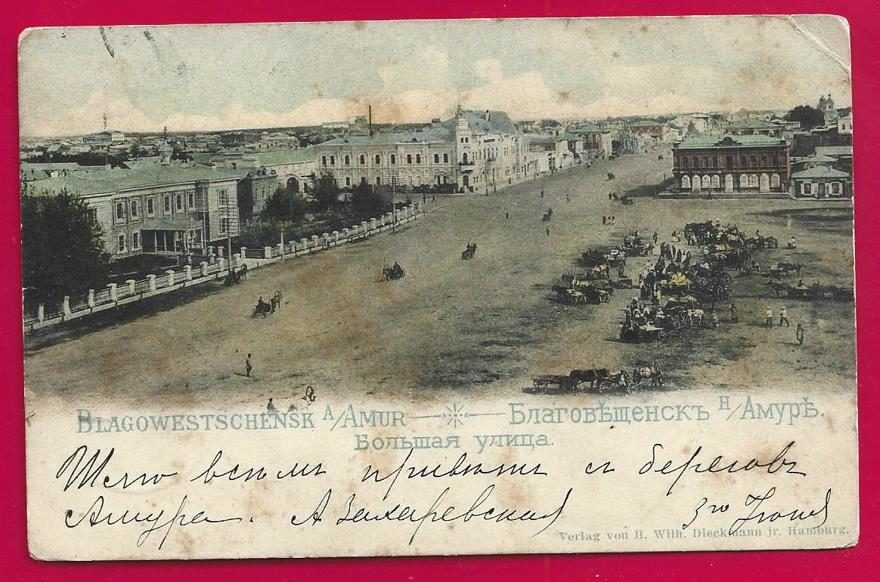 BLAGOWESTSCHENSK A/AMUR — БЛАГОВѢЩЕНСКЪ Н/АМУРѢ.
Большая улица.
Шлю всѣмъ привѣтъ съ береговъ
Амура. А Захаревская 3го
Verlag von H. Wilh. Dieckmann jr. Hamburg.